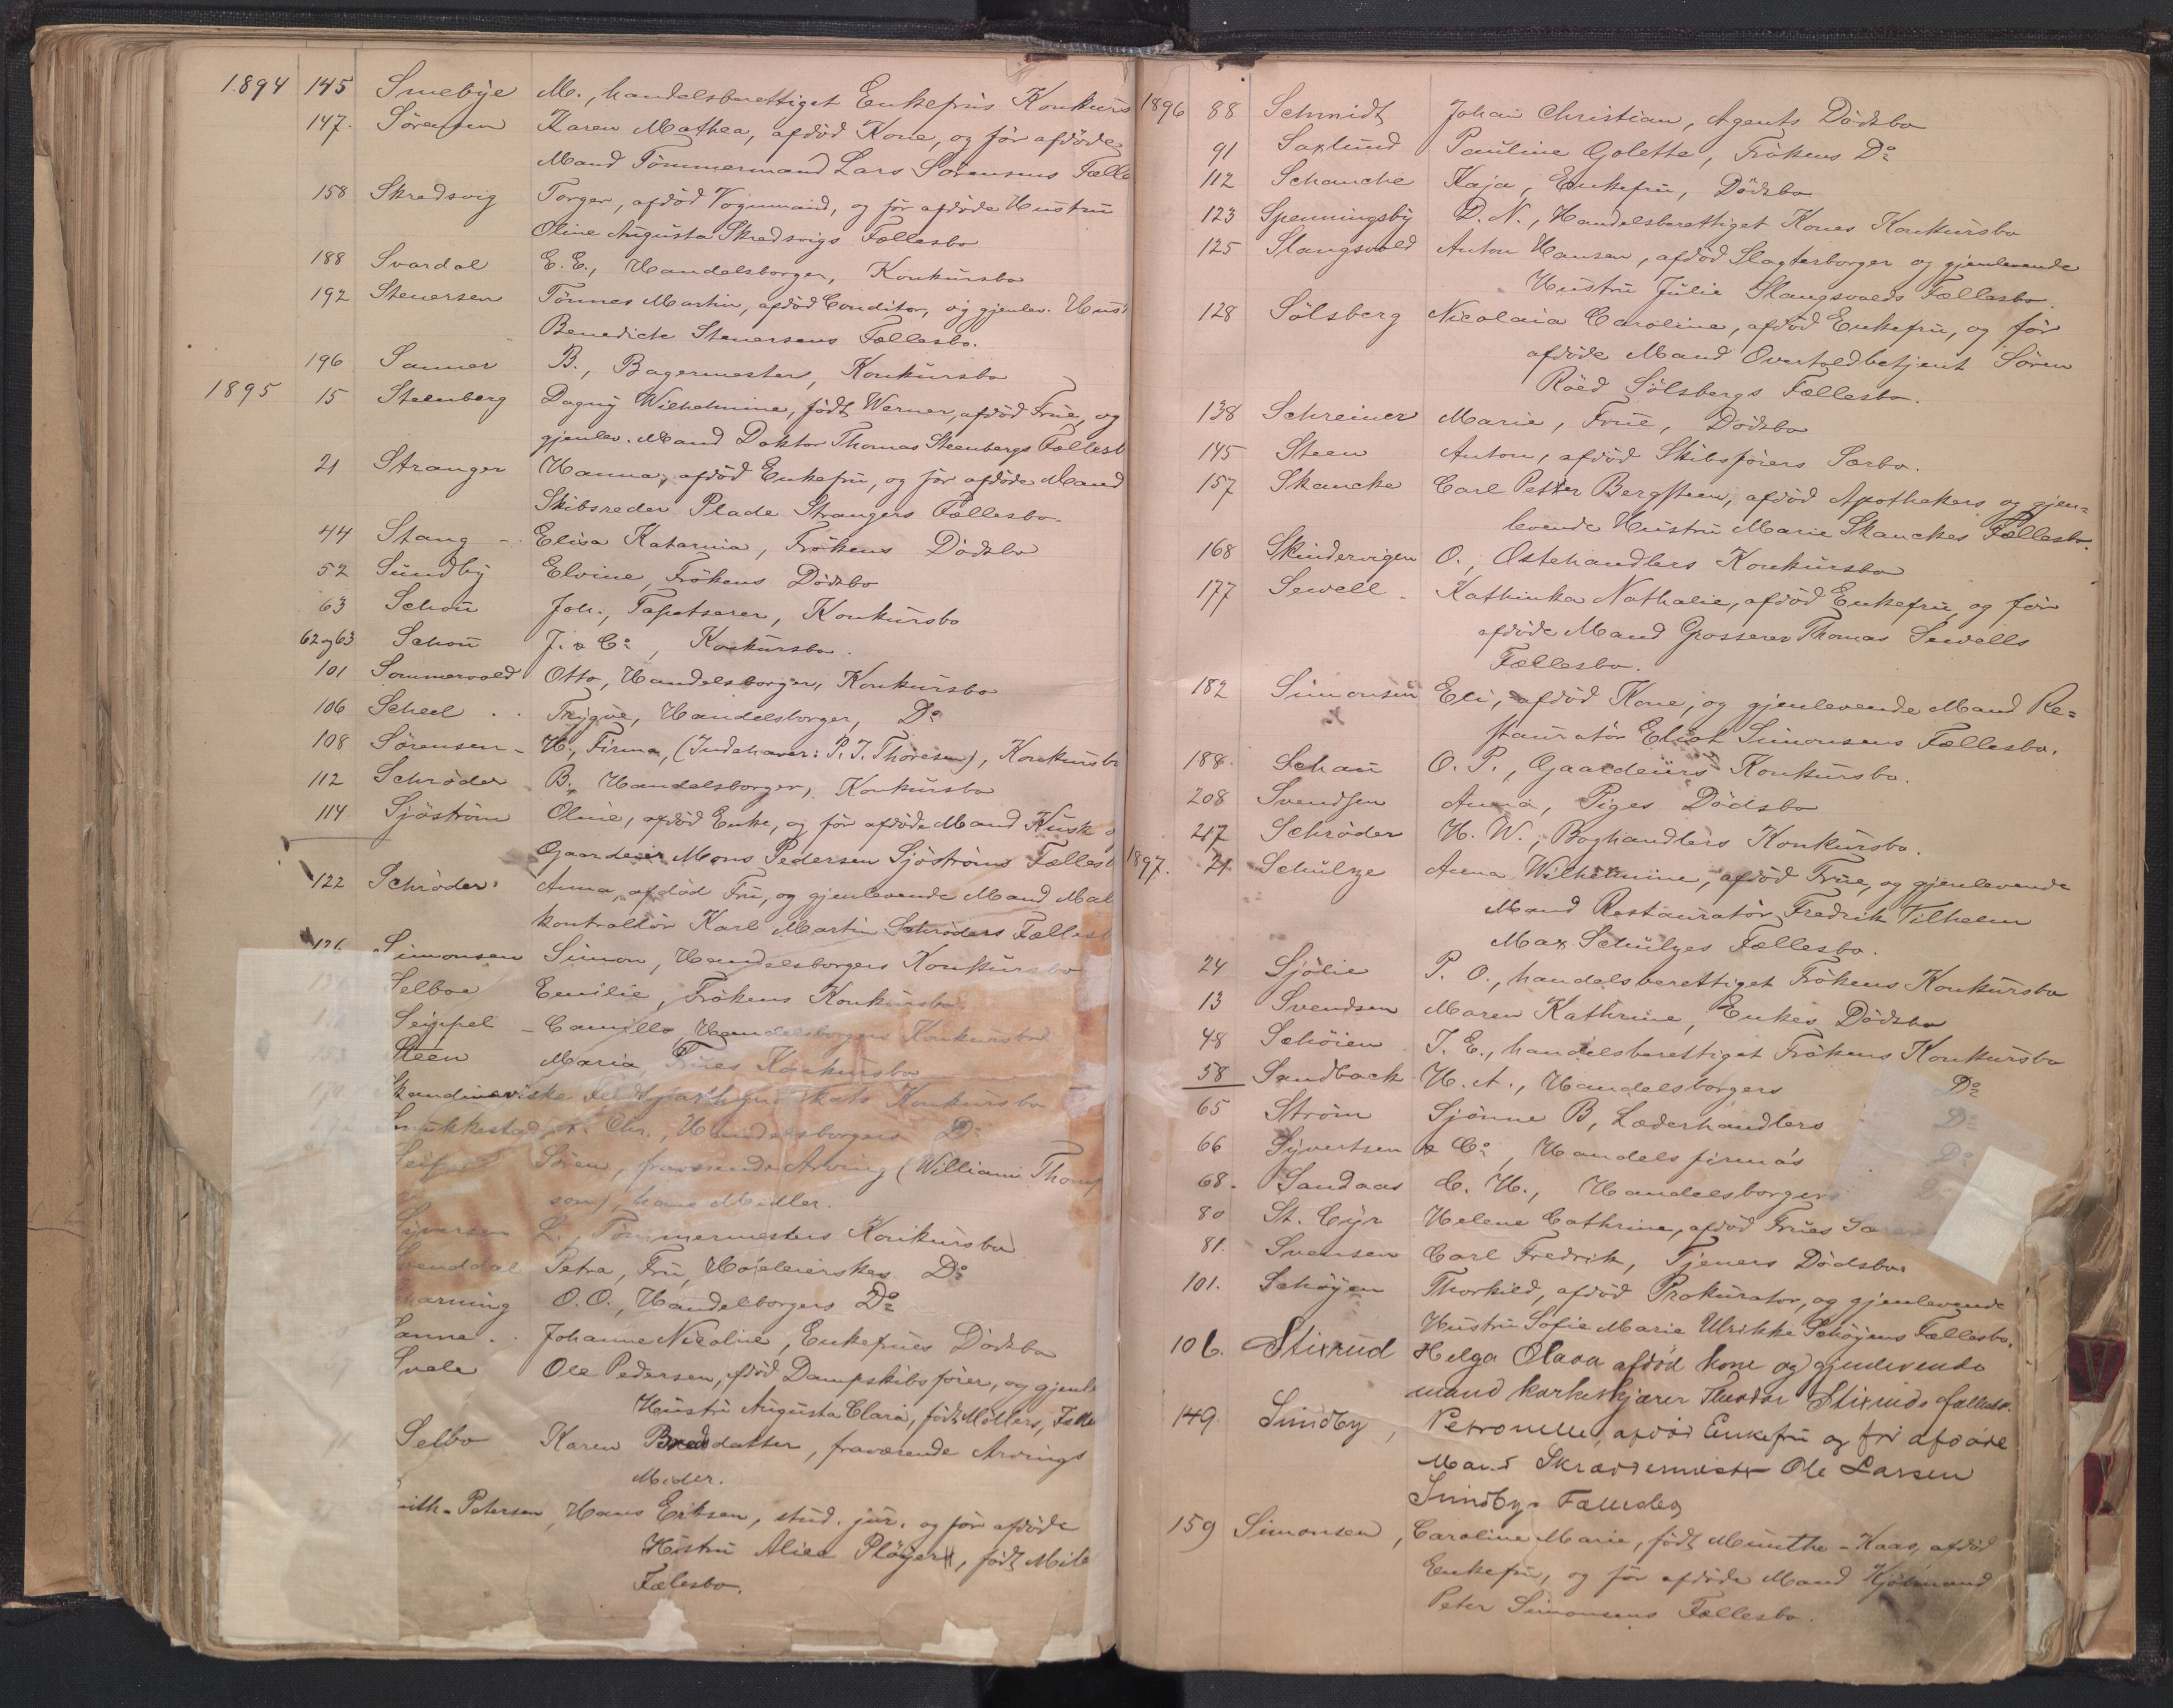 1894 145 Smebye M., handelsberettiget Enkefrus Konkurs
147. Sörensen Karen Mathea, afdöd Kone, og för afdöde
Mand Tömmermand Lars Sörensens Fælle
158 Skredsvig Torger, afdöd Vognmand, og för afdöde Hustru
Oline Augusta Skredsvigs Fællesbo
188 Svardal E. E., Handelsborger, Konkursbo
192 Stenersen Tönnes Martin, afdöd Conditor, og gjenlev. Hust
Benedicte Stenersens Fællesbo.
196 Sanner B., Bagermester, Konkursbo
1895 15 Steenberg Dagny Wilhelmine, födt Werner, afdöd Frue, og
gjenlev. Mand Doktor Thomas Steenbergs Fællesb
21 Stranger Hanna, afdöd Enkefru, og för afdöde Mand
Skibsreder Plade Strangers Fællesbo.
44 Stang - Elisa Katarina, Frökens Dödsbo
52 Sundby Elvine, Frökens Dödsbo
63 Schou Joh., Tapetserer, Konkursbo
62 og 63 Schou J. & Co, Konkursbo.
101 Sommervold Otto, Handelsborger, Konkursbo
106 Scheel . . Trygve, Handelsborger, Do
108 Sörensen - H., Firma, (Indehaver: P. J. Thoresen), Konkursbo
112 Schröder B., Handelsborger, Konkursbo
114 Sjöström Oline, afdöd Enke, og för afdöde Mand Kusk o
Gaardeier Mons Pedersen Sjöströms Fællesb
122 Schröder Anna, afdöd Fru, og gjenlevende Mand Mal
kontrollör Karl Martin Schröders Fællesb
126 Simonsen Simon, Handelsborgers Konkursbo
Selboe Emilie, Frökens Konkursbo
Seippel - Camillo, Handelsborgers Konkursbo
Steen Maria, Frues Konkursbo
Skandinaviske Konkursbo
Chr., Handelsborgers Do
Sören, fraværende Arving (William Thomp
son), hans Midler.
Syversen L., Tömmermesters Konkursbo
Svenddal Petra, Fru, Do
harning O. O., Handelborgers Do
Sanne . . Johanne Nicoline, Enkefrues Dödsbo
Svale Ole Pedersen, afdöd Dampskibsförer, og gjenle
Hustru Augusta Clara, födt Möllers, Fælle
Selbo Karen datter, fraværende Arvings
Midler.
mith-Petersen, Hans Eriksen, stud. jur. og för afdöde
Hustru Alice Plöyer, födt
Fælesbo.
1896 88 Schmidt Johan Christian, Agents Dödsbo
91 Saxlund Pauline Golette, Frökens Do
112 Schanche Kaja, Enkefru, Dödsbo
123 Spenningsby D. N., Handelsberettiget Kones Konkursbo
125 Slangsvold Anton Hansen, afdöd Slagterborger og gjenlevende
Hustru Julie Slangsvolds Fællesbo.
128 Sölsberg Nicolaia Caroline, afdöd Enkefru, og för
afdöde Mand Overtoldbetjent Sören
Röed Sölsbergs Fællesbo.
138 Schreiner Marie, Frue, Dödsbo
145 Steen Anton, afdöd Skibsförers Særbo.
157 Skancke Carl Petter Bergsteen, afdöd Apothekers og gjen=
levende Hustru Marie Skanckes Fællesbo.
168 Skindervigen O., Ostehandlers Konkursbo
177 Sewell - Kathinka Nathalie, afdöd Enkefru, og för
afdöde Mand Grosserer Thomas Sewells
Fællesbo.
182 Simonsen Eli, afdöd Kone, og gjenlevende Mand Re=
stauratör Simonsens Fællesbo.
188. Schau O. P., Gaardeiers Konkursbo.
208 Svendsen Anna, Piges Dödsbo
217 Schröder H. W., Boghandlers Konkursbo.
1897. 21 Schulze Anna Wilhelmine, afdöd Frue, og gjenlevende
Mand Restauratör Fredrik Vilhelm
Max Schulzes Fællesbo.
24 Sjölie P. O., handelsberettiget Frökens Konkursbo
13 Svendsen Maren Kathrine, Enkes Dödsbo
48 Schöien J. E., handelsberettiget Frökens Konkursbo
58 Sandback H. A., Handelsborgers Do
65 Ström Sjönne B, Læderhandlers Do
66 Syvertsen & Co, Handelsfirma's Do
68. Sandaas C. H., Handelsborgers D
80 St. Cyr Helene Cathrine, afdöd Frues
81. Svensen Carl Fredrik, Tjeners Dödsbo
101. Schöyen Thorkild, afdöd Prokurator, og gjenlevende
Hustru Sofie Marie Ulrikke Schöyens Fællesbo.
106. Stixrud Helga Olava afdöd kone og gjenlevende
mand korkeskjærer Theodor Stixruds fællesbo.
149. Sundby, Petronelle, afdöd Enkefru og för afdöde
Mand Skræddermester Ole Larsen
Sundbys Fællesbo
159 Simonsen, Caroline Marie, födt Munthe-Kaas, afdöd
Enkefru, og för afdöde Mand Kjöbmand
Peter Simonsens Fællesbo.